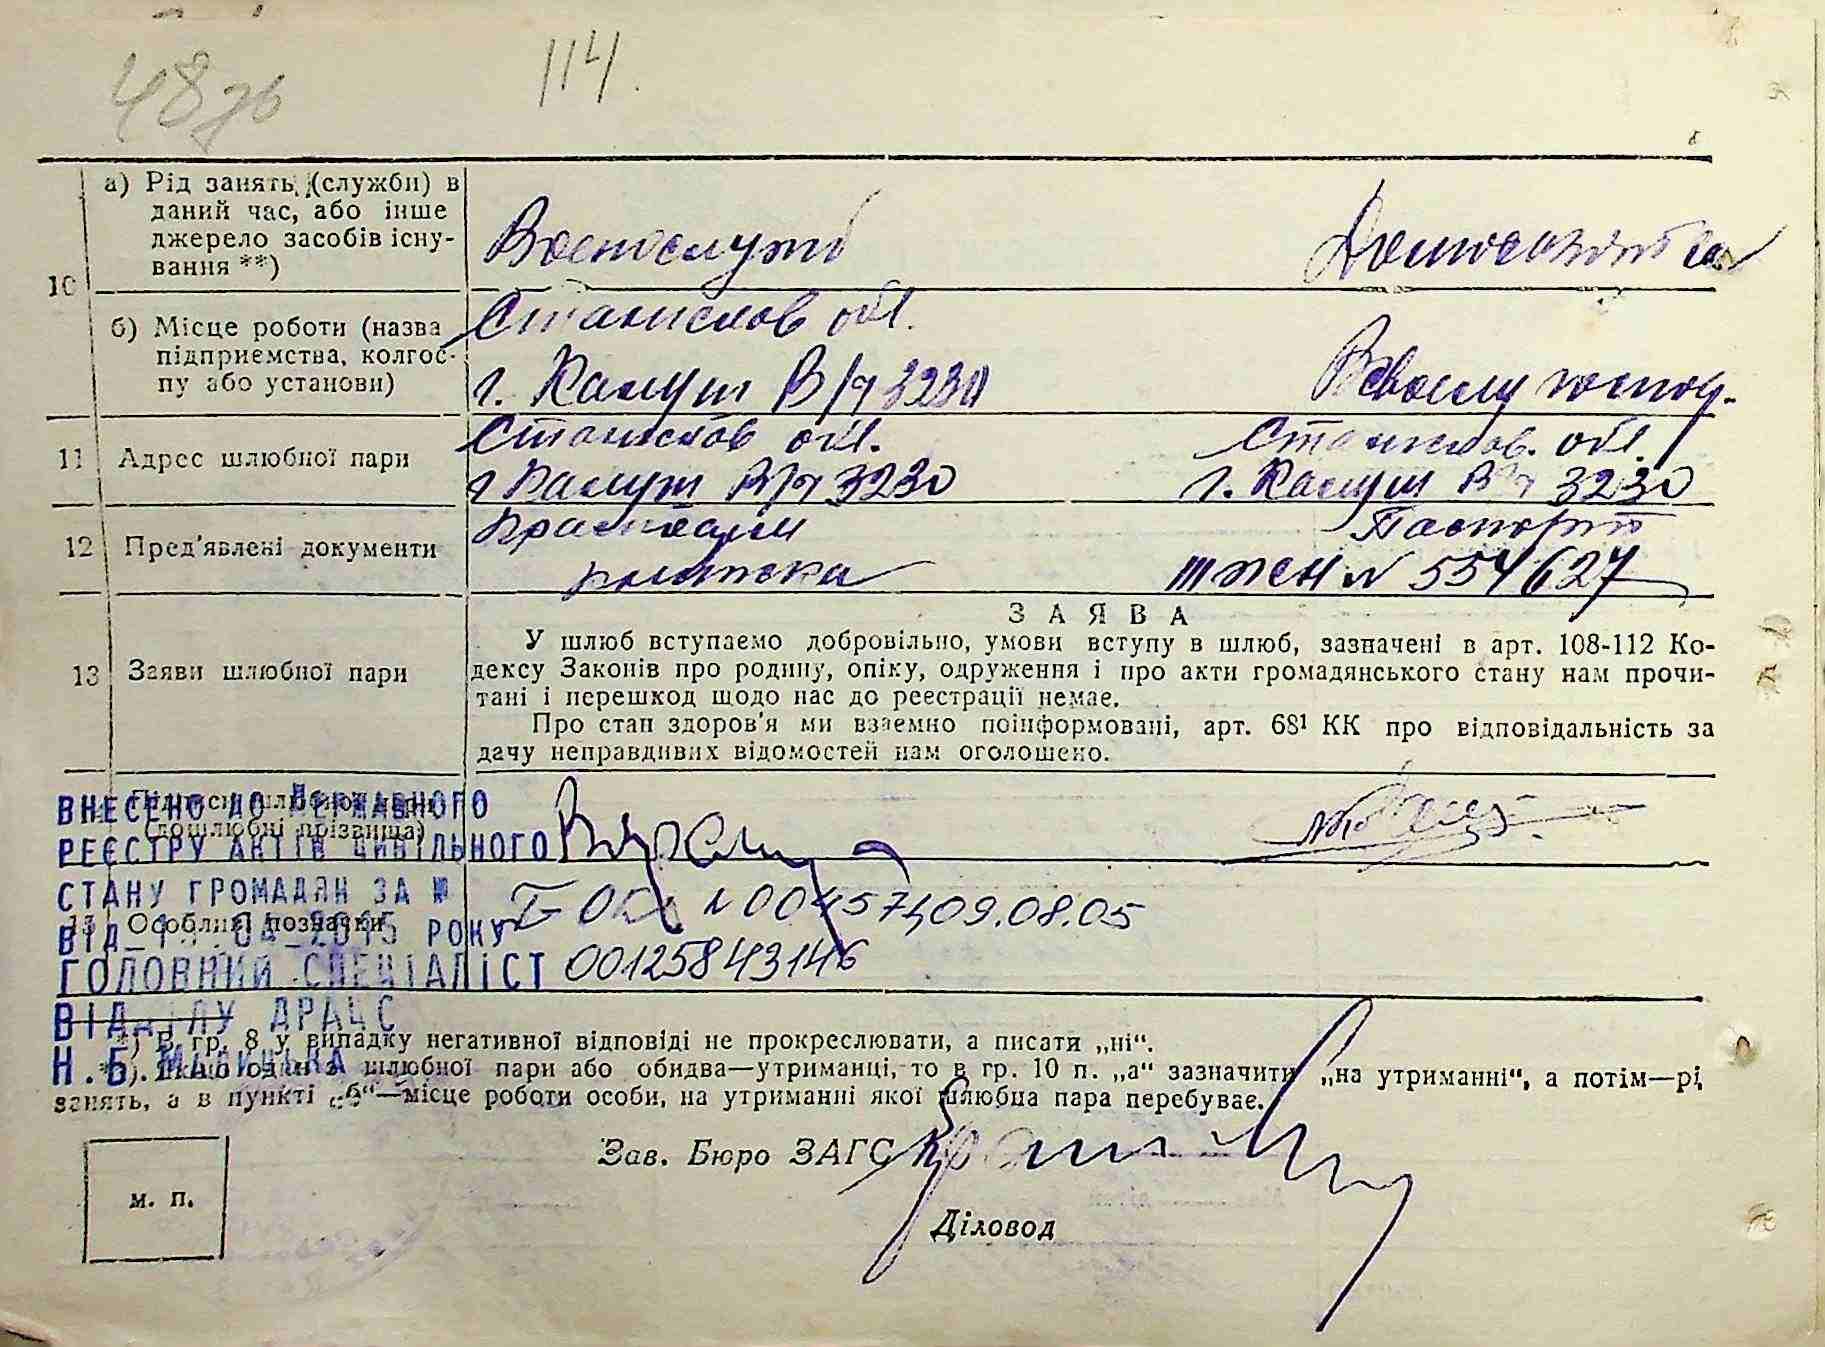 48
114.
10
а) Рід занять (служби) в
даний час, або інше
джерело засобів існу-
вання **)
Военослужб
Домохозяйка
б) Місце роботи (назва
підприємства, колгос-
пу або установи)
Станислав обл.
г. Калуш В/ч 3230
11
Адрес шлюбної пари
Станислав обл.
г Калуш В/ч 3230
Станислав. обл.
г. Калуш В/ч 3230
12
Пред'явлені документи
Паспорт
№ 554627
З А Я В А
13
Заяви шлюбної пари
У шлюб вступаємо добровільно, умови вступу в шлюб, зазначені в арт. 108-112 Ко-
дексу Законів про родину, опіку, одруження і про акти громадянського стану нам прочи-
тані і перешкод щодо нас до реєстрації немає.
Про стан здоров'я ми взаємно поінформовані, арт. 68¹ КК про відповідальність за
дачу неправдивих відомостей нам оголошено.
Підписи шлюбної пари
(дошлюбні прізвища)
ВНЕСЕНО ДО ДЕРЖАВНОГО
РЕЄСТРУ АКТІВ ЦИВІЛЬНОГО
СТАНУ ГРОМАДЯН ЗА №
Особливі позначки
09.08.05
ВІД 2015 РОКУ
ГОЛОВНИЙ СПЕЦІАЛІСТ
00125843146
ВІДДІЛУ ДРАЦС
Н.Б.
*) В гр. 8 у випадку негативної відповіді не прокреслювати, а писати „ні“.
**). Якщо один з шлюбної пари або обидва—утриманці, то в гр. 10 п. „а“ зазначити „на утриманні“, а потім—рі
занять, а в пункті „б“—місце роботи особи, на утриманні якої шлюбна пара перебуває.
Зав. Бюро ЗАГС
м. п.
Діловод